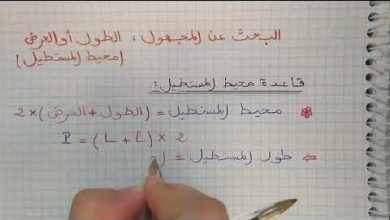 البحث عن المجهول: الطول أو العرض
(محيط المستطيل)
قاعدة محيط المستطيل:
محيط المستطيل = (الطول + العرض) × 2
P = (L + l) × 2
⇐ طول المستطيل = (